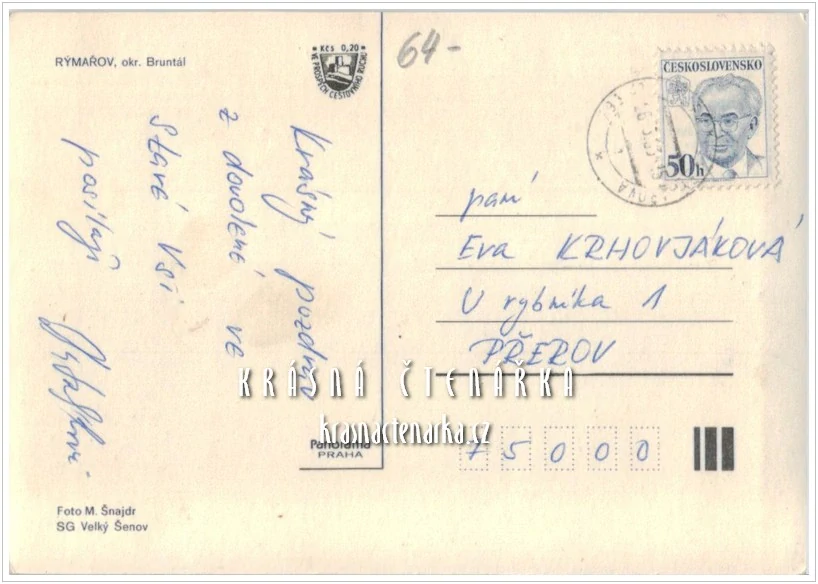 RÝMAŘOV, okr. Bruntál
Kčs 0,20
VE PROSPĚCH CESTOVNÍHO RUCHU
64-
ČESKOSLOVENSKO
50h
Krásný pozdrav
z dovolené ve
Staré Vsi
posílají
paní
Eva KRHOVJÁKOVÁ
U rybníka 1
PŘEROV
KRÁSNÁ ČTENÁŘKA
krasnactenarka.cz
Panorama
PRAHA
75000
Foto M. Šnajdr
SG Velký Šenov